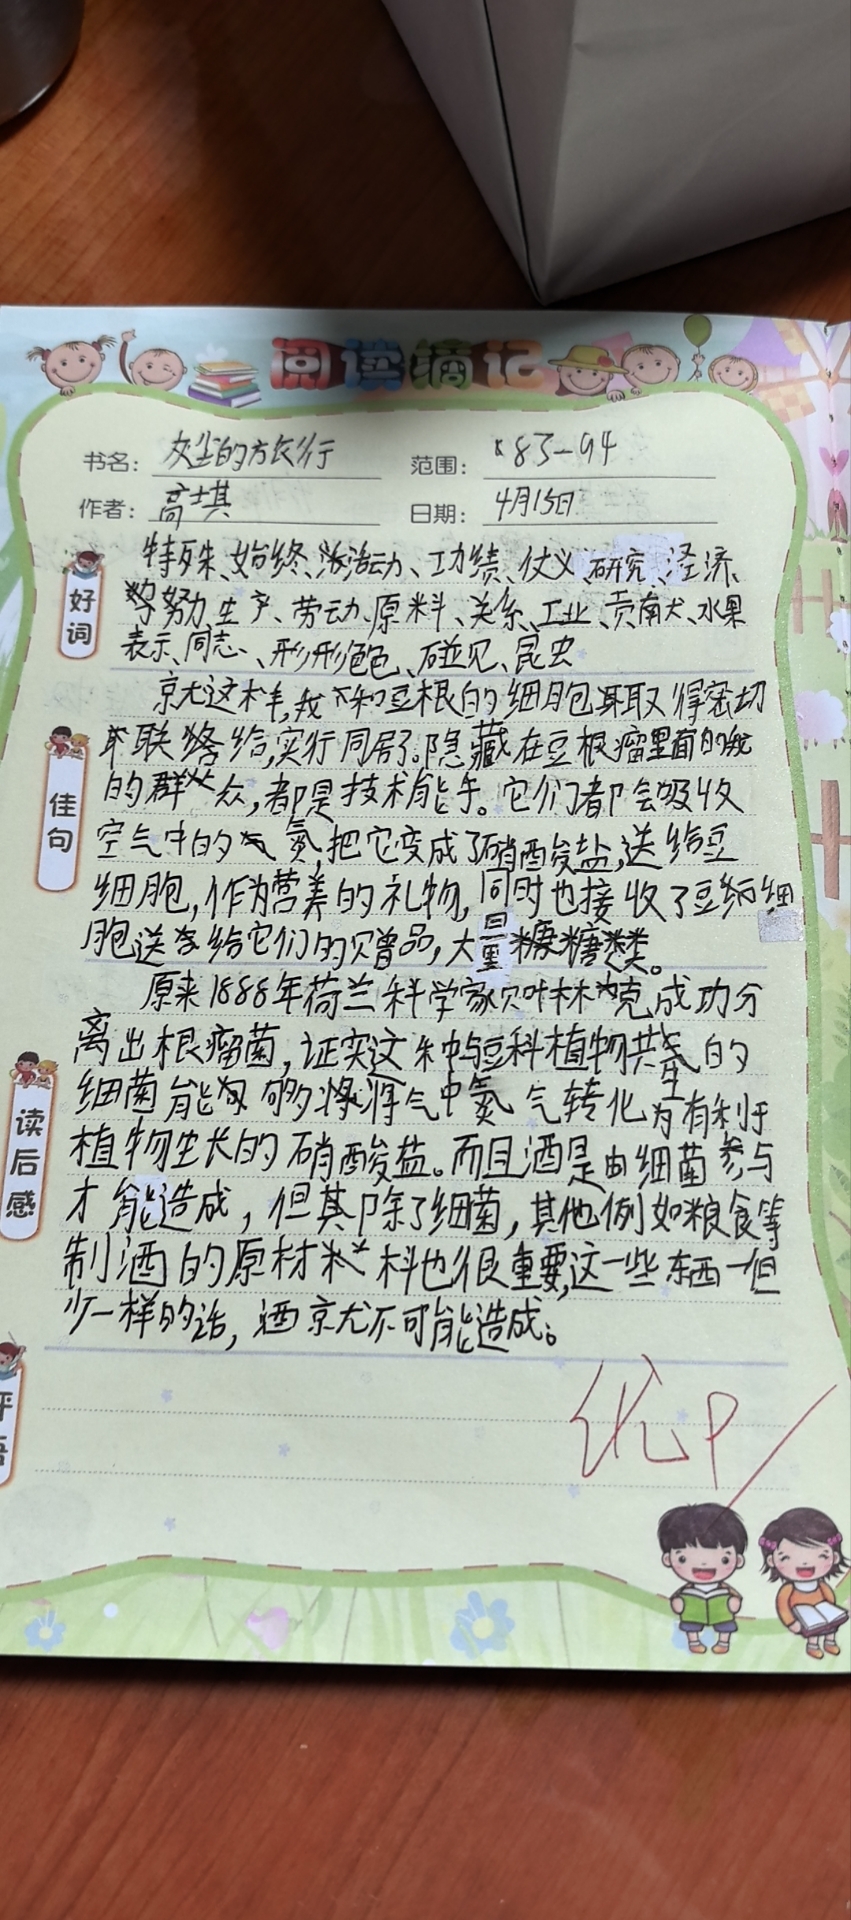 阅读摘记
书名: 灰尘的旅行 范围: 83-94
作者: 高士其 日期: 4月15日
好词
特殊、始终、活动、功绩、仪义、研究、经济、
努力、生产、劳动、原料、关系、工业、贡献、水果
表示、同志、形形色色、碰见、昆虫
佳句
就这样,我和豆根的细胞取得密切
联络,实行同居了。隐藏在豆根瘤里面的我
的群众,都是技术能手。它们都会吸收
空气中的氮,把它变成了硝酸盐,送给豆
细胞,作为营养的礼物,同时也接收了豆细
胞送给它们的赠品,大量糖类。
读后感
原来1888年荷兰科学家贝叶林克成功分
离出根瘤菌,证实这种与豆科植物共生的
细菌能够将气中氮气转化为有利于
植物生长的硝酸盐。而且酒是由细菌参与
才能造成,但其除了细菌,其他例如粮食等
制酒的原材料也很重要,这一些东西一但
少一样的话,酒就不可能造成。
评语
优P